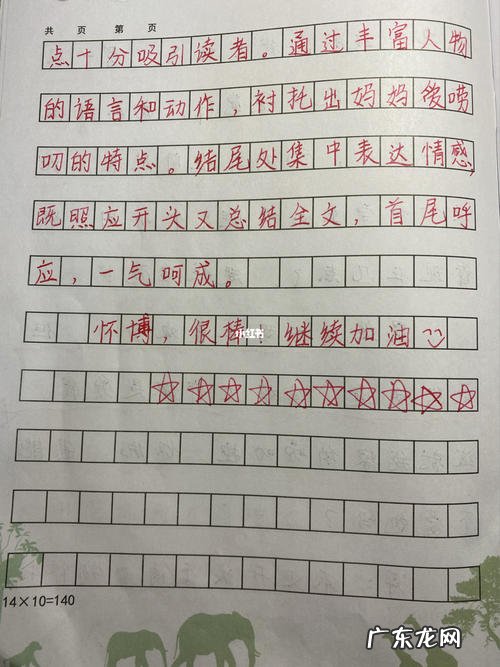 共 页 第 页
点十分吸引读者。通过丰富人物
的语言和动作，衬托出妈妈爱唠
叨的特点。结尾处集中表达情感，
既照应开头又总结全文，首尾呼
应，一气呵成。
怀博，很棒！继续加油
小红书
☆☆☆☆☆☆☆☆☆☆
14×10=140
广东龙网